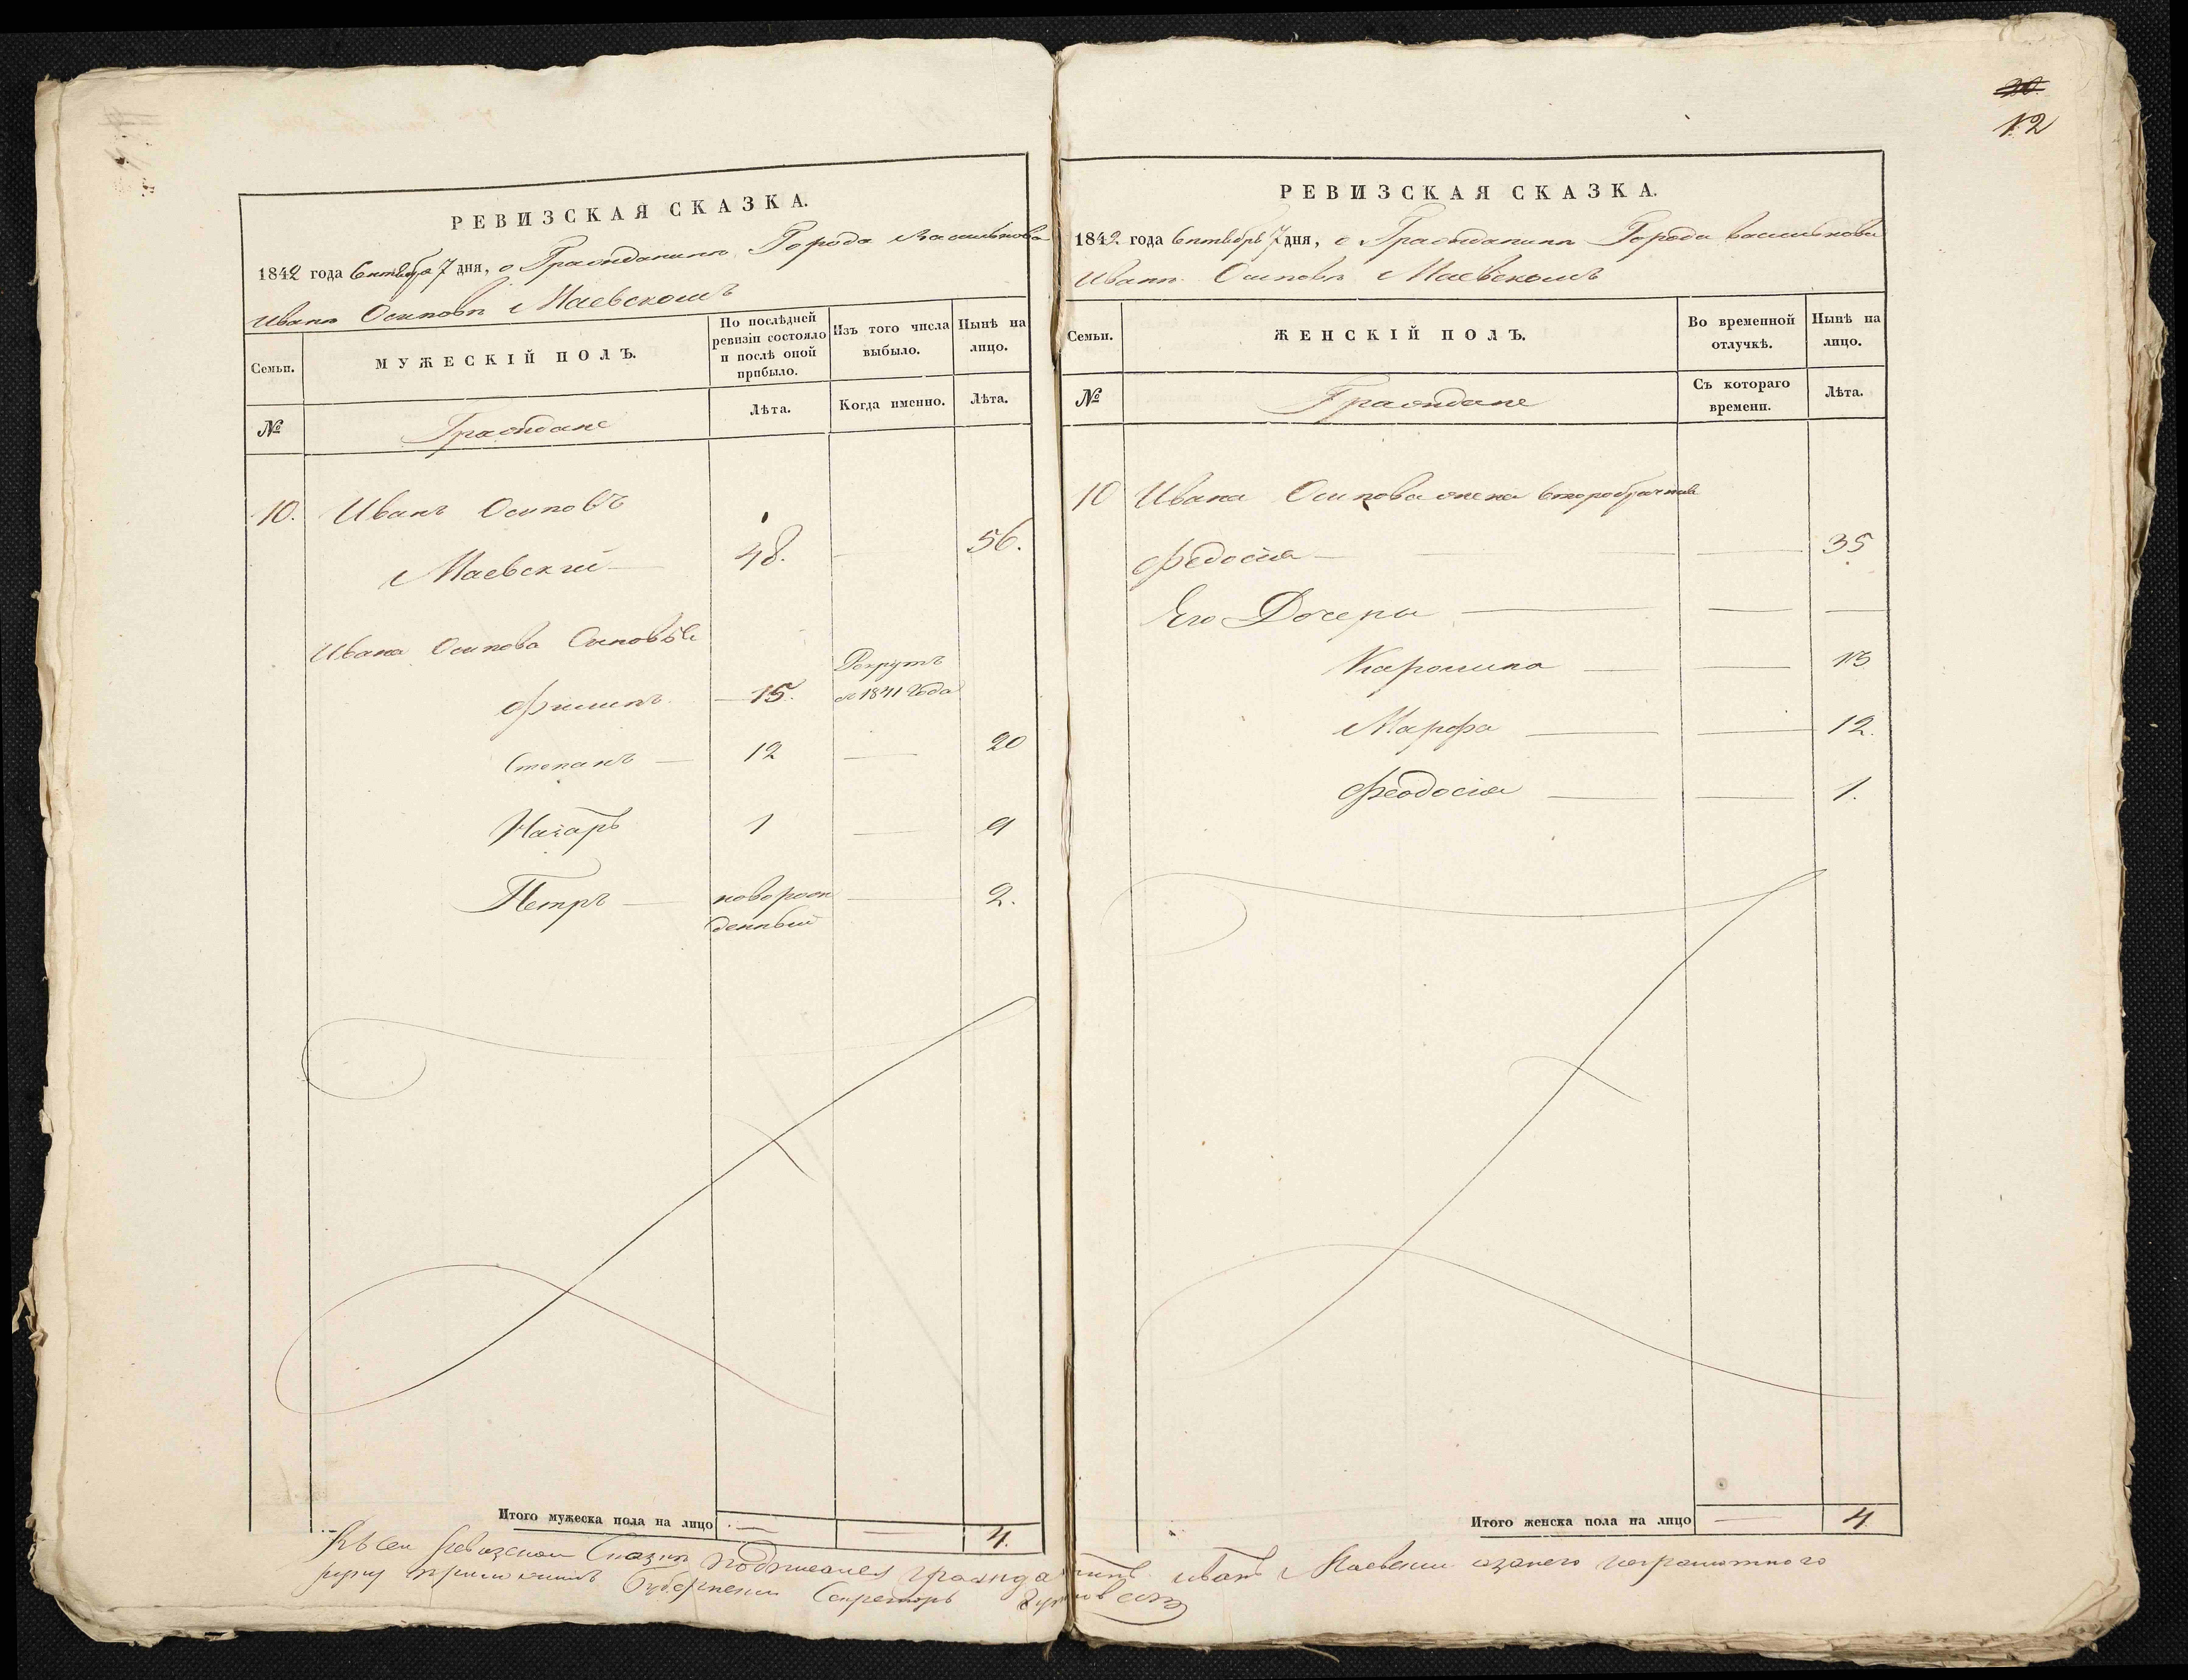 12
РЕВИЗСКАЯ СКАЗКА.
1842 года Сентября 7 дня, о Гражданинѣ Города Василькова
Иванѣ Осиповѣ Маевскомъ
Семьи.
МУЖЕСКІЙ ПОЛЪ.
По послѣдней ревизіи состояло и послѣ оной прибыло.
Изъ того числа выбыло.
Нынѣ на лицо.
№
Граждане
Лѣта.
Когда именно.
Лѣта.
10. Иванъ Осиповъ
Маевскій 48. 56.
Ивана Осипова Сыновья
Филипъ 15. Рекрутъ съ 1841 года
Степанъ 12 20
Назаръ 1 9
Петръ новорожденный 2.
Итого мужеска пола на лицо 4.
РЕВИЗСКАЯ СКАЗКА.
1842 года Сентября 7 дня, о Гражданинѣ Города Василькова
Иванѣ Осиповѣ Маевскомъ
Семьи.
ЖЕНСКІЙ ПОЛЪ.
Во временной отлучкѣ.
Нынѣ на лицо.
№
Граждане
Съ котораго времени.
Лѣта.
10 Ивана Осипова жена второбрачная
Федосія 35
Его Дочери
Каролина 13
Марфа 12.
Феодосія 1.
Итого женска пола на лицо 4
Къ сей ревизской Сказки подписался гражданинъ Иванъ Маевский а за него неграмотного
руку приложилъ Губернский Секретарь